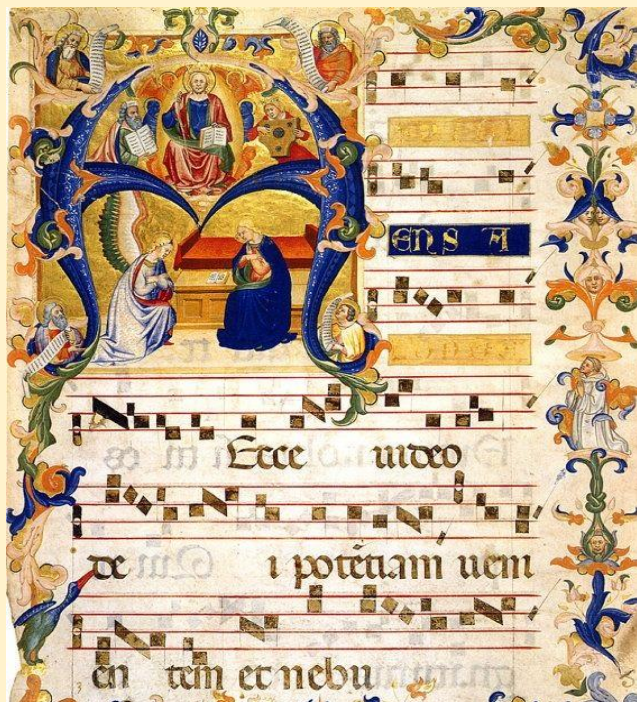 A
ENS A
Ecce uideo
de i potētiam ueni
en tem et nebu